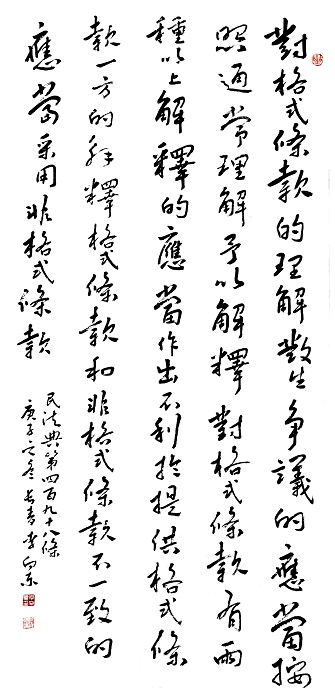 對格式條款的理解發生爭議的應當按
照通常理解予以解釋對格式條款有兩
種以上解釋的應當作出不利於提供格式條
款一方的解釋格式條款和非格式條款不一致的
應當采用非格式條款
民法典第四百九十八條
庚子之冬長青李向东